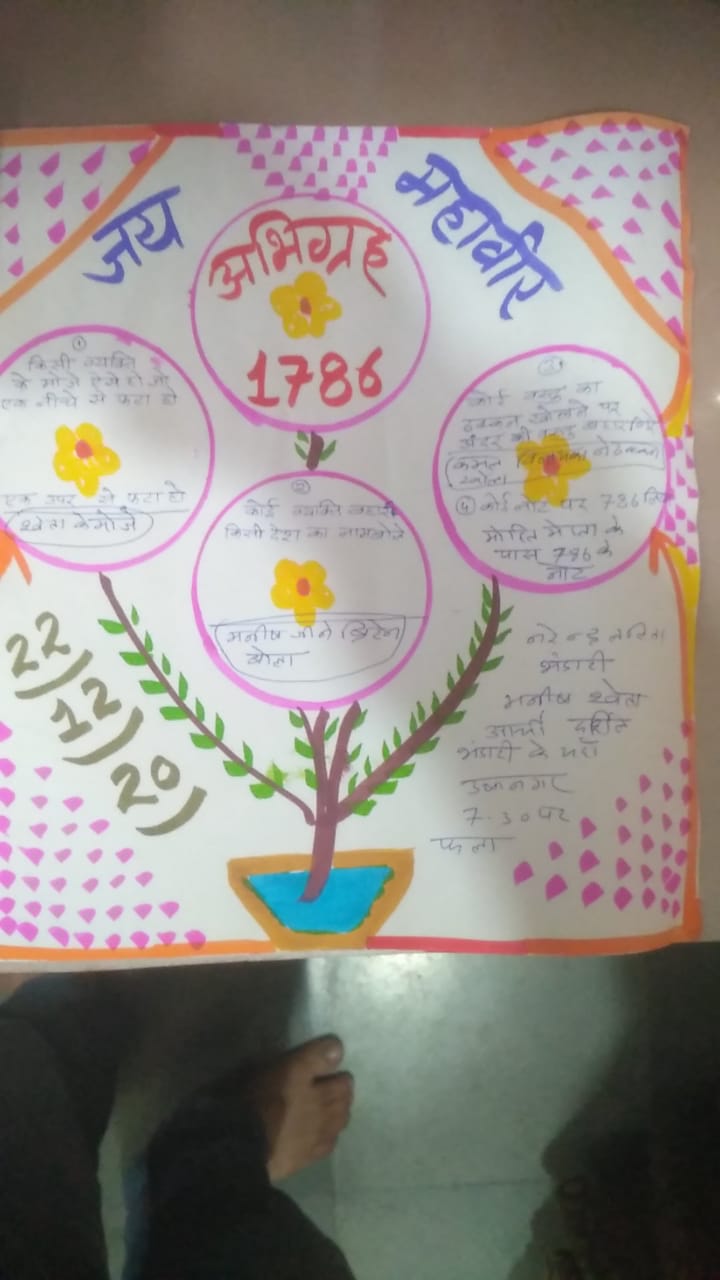 जय
महावीर
अभिग्रह
1786
①
किसी व्यक्ति
के मोजे ऐसे हो जो
एक नीचे से फटा हो
एक उपर से फटा हो
श्वेता के मोजे
②
कोई व्यक्ति कहानी
किसी देश का नाम बोले
मनीष जी ने ब्रिटेन
बोला
③
कोई वस्तु का
ढक्कन खोलने पर
अंदर की वस्तु बाहर गिरे
कमल ने ढक्कन
खोला
④ कोई नोट पर 786 लिखा
मोहित मेहता के
पास 786 के
नोट
22/12/20
नरेन्द्र
भंडारी
मनीष श्वेता
आर्ची हर्षित
भंडारी के यहाँ
7.30 पर
फला